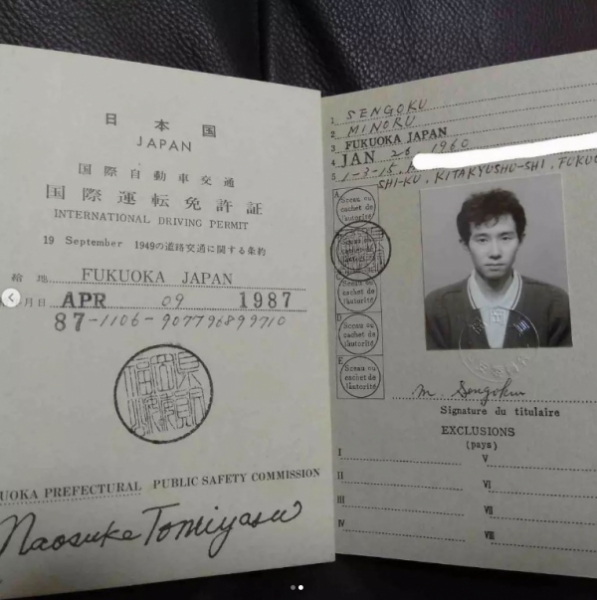 日本国
JAPAN
国際自動車交通
国際運転免許証
INTERNATIONAL DRIVING PERMIT
19 September 1949の道路交通に関する条約
給地 FUKUOKA JAPAN
月日 APR 09 1987
87-1106-907796899710
UOKA PREFECTURAL PUBLIC SAFETY COMMISSION
Naosuke Tomiyasu
1 SENGOKU
2 MINORU
3 FUKUOKA JAPAN
4 JAN 26 1960
5 1-3-15,
SHI-KU, KITAKYUSHU-SHI, FUKUO
A Sceau ou cachet de l'autorité
Sceau ou cachet de l'autorité
D Sceau ou cachet de l'autorité
E Sceau ou cachet de l'autorité
M. Sengoku
Signature du titulaire
EXCLUSIONS
(pays)
I V
II VI
III VII
IV VIII